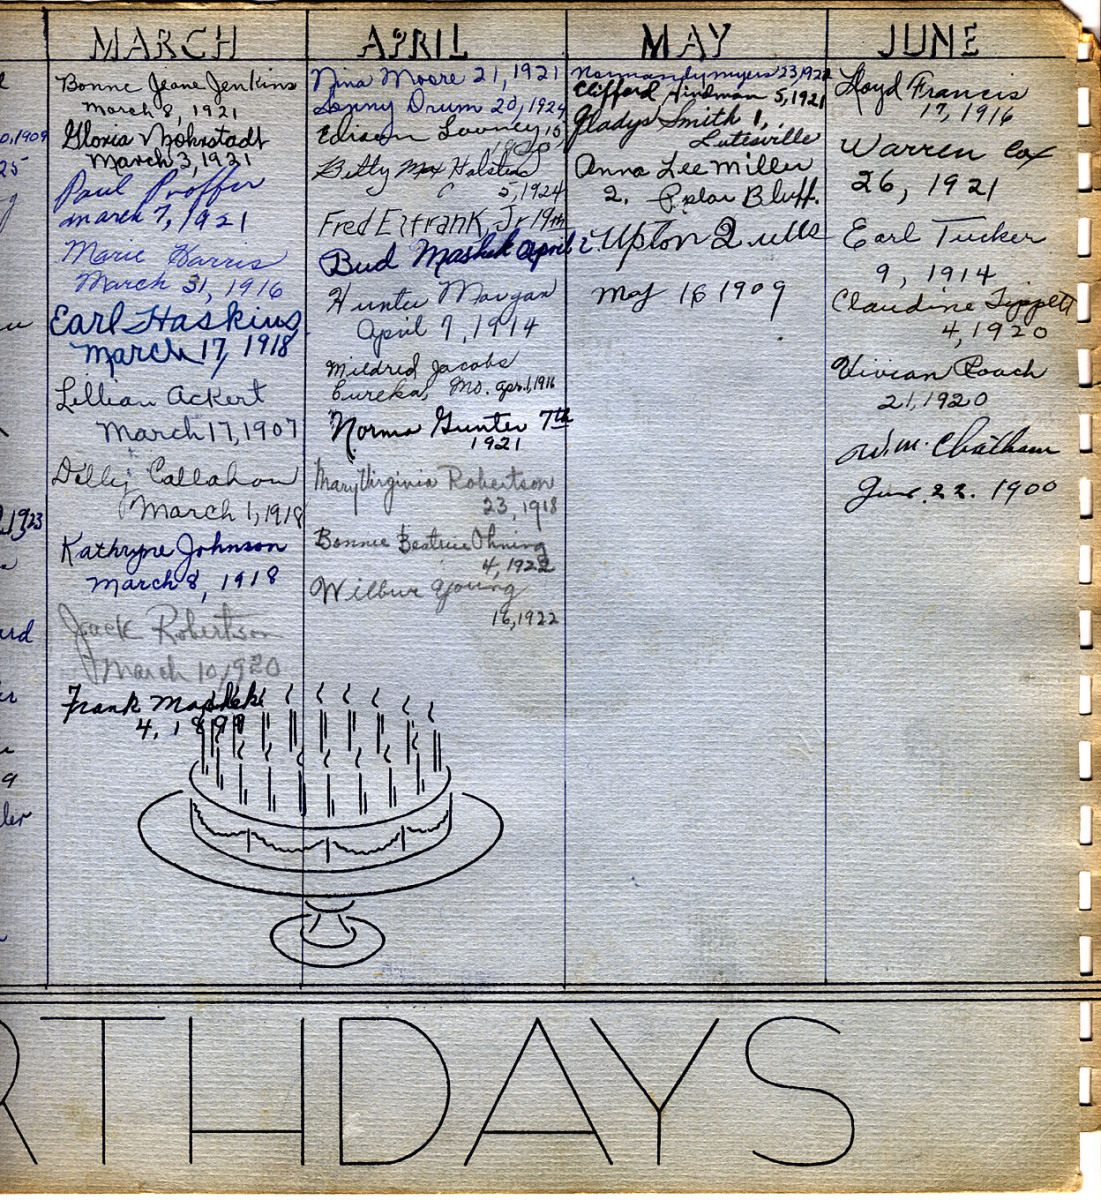 MARCH
Bonne Jeane Jenkins
March 8, 1921
Gloria Bohrstadt
March 3, 1921
Paul Proffer
march 7, 1921
Marie Harris
March 31, 1916
Earl Haskins
March 17, 1918
Lillian Ackert
March 17, 1907
Callahan
March 1, 1918
Kathryne Johnson
March 8, 1918
Jack Robertson
March 10, 1920
Frank Mashek
4, 18
APRIL
Nina Moore 21, 1921
Sonny Drum 20, 1924
Edison Looney 15,
Betty Mae
5, 1924
Fred Elfrank, Jr 19th
Bud Mashek April 2
Hunter Morgan
April 9, 1914
Mildred Jacobs
Eureka, Mo. Apr. 1, 1916
Norma Gunter 7th
1921
Mary Virginia Robertson
23, 1918
Bonnie Beatrice Ohning
4, 1922
Wilbur Young
16, 1922
MAY
Normandy Myers 23, 1922
Clifford Hindman 5, 1921
Gladys Smith 1,
Lutesville
Anna Lee Miller
2. Poplar Bluff.
Upton
May 16 1909
JUNE
Lloyd Francis
17, 1916
Warren Cox
26, 1921
Earl Tucker
9, 1914
Claudine Tippett
4, 1920
Vivian Roach
21, 1920
Wm. Chatham
June 22. 1900
0, 1909
25
1923
RTHDAYS